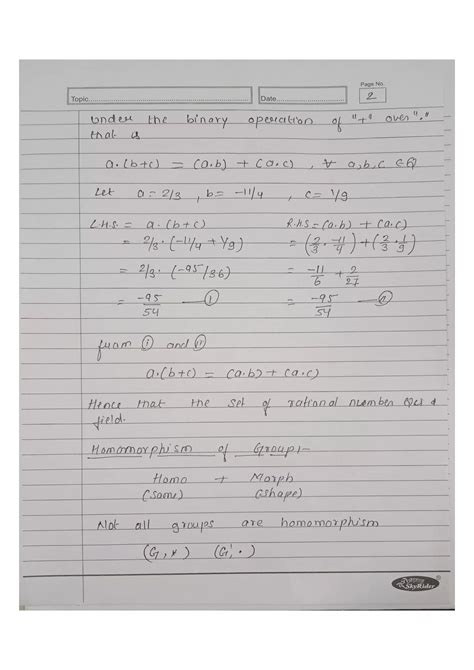 Page No.
Topic.......... Date.......... 2
under the binary operation of "+" over "."
that is
a.(b+c) = (a.b) + (a.c), ∀ a,b,c ∈Q
Let a = 2/3, b = -11/4, c = 1/9
L.H.S = a.(b+c) R.H.S = (a.b) + (a.c)
= 2/3 . (-11/4 + 1/9) = (2/3 . -11/4) + (2/3 . 1/9)
= 2/3 . (-95/36) = -11/6 + 2/27
= -95/54 —(i) = -95/54 —(ii)
from (i) and (ii)
a.(b+c) = (a.b) + (a.c)
Hence that the set of rational number is a
field.
Homomorphism of Group:-
Homo + Morph
(same) (shape)
Not all groups are homomorphism
(G,*) (G'.)
SkyRider